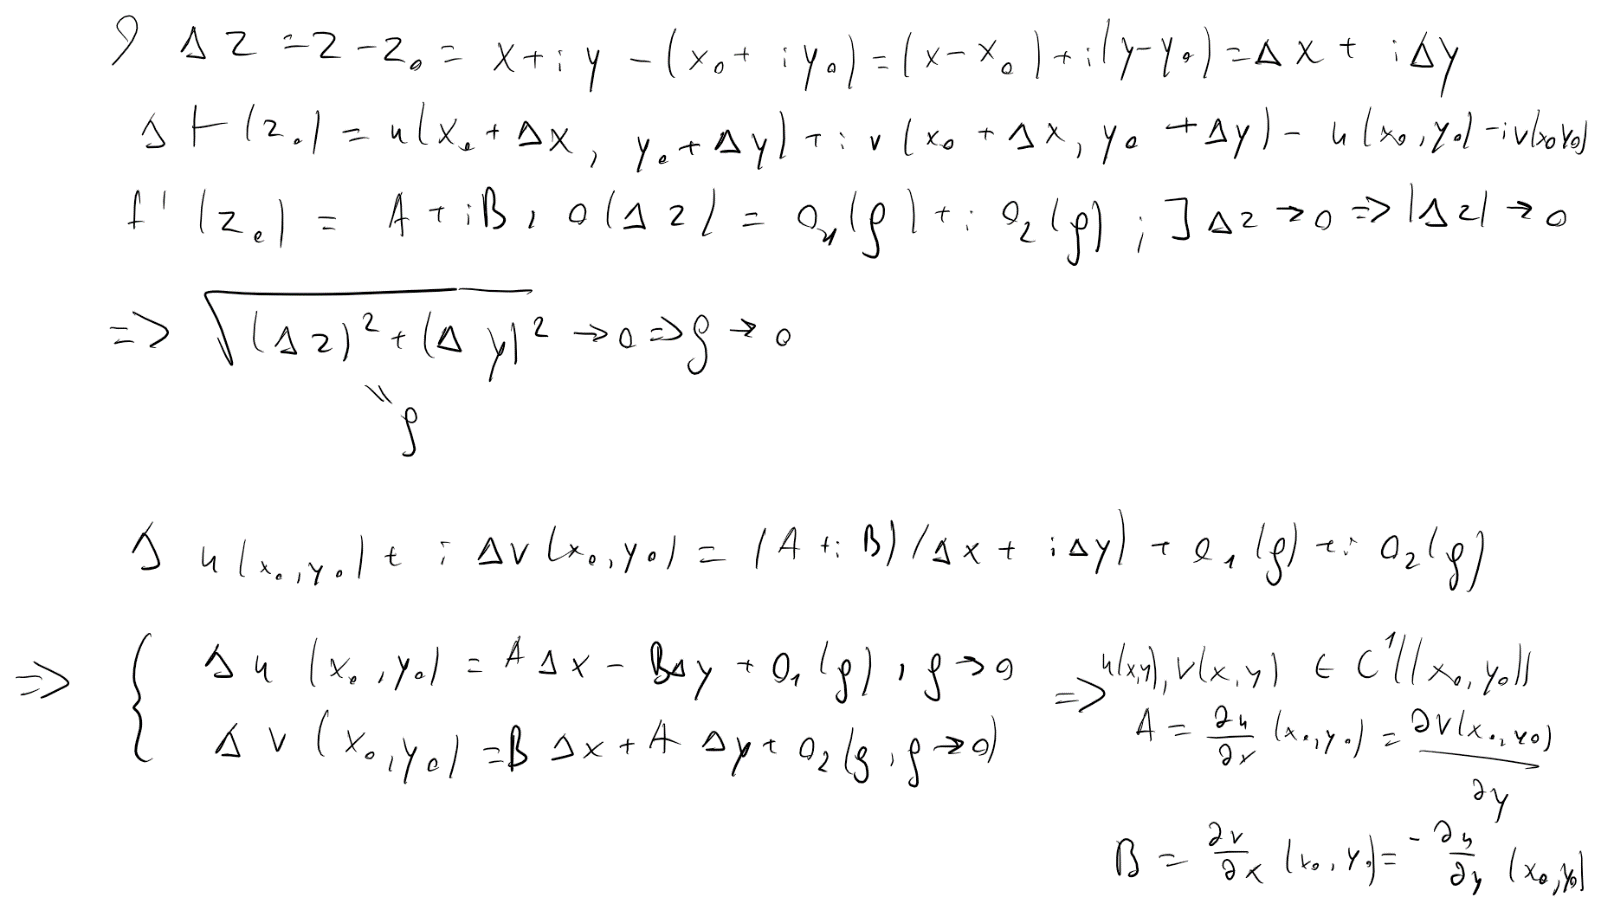 Δz = z - z₀ = x + iy - (x₀ + iy₀) = (x - x₀) + i(y - y₀) = Δx + iΔy
Δf(z₀) = u(x₀ + Δx, y₀ + Δy) + iv(x₀ + Δx, y₀ + Δy) - u(x₀, y₀) - iv(x₀y₀)
f'(z₀) = A + iB, o(Δz) = o₁(ρ) + i o₂(ρ); ] Δz → 0 => |Δz| → 0
=> √((Δz)² + (Δy)²) → 0 => ρ → 0
॥
ρ
Δu(x₀, y₀) + iΔv(x₀, y₀) = (A + iB)(Δx + iΔy) + o₁(ρ) + i o₂(ρ)
=> { Δu(x₀, y₀) = AΔx - BΔy + o₁(ρ), ρ → 0 => u(x,y), v(x,y) ∈ C¹((x₀, y₀))
Δv(x₀, y₀) = BΔx + AΔy + o₂(ρ, ρ → 0) A = ∂u/∂x (x₀, y₀) = ∂v(x₀, y₀)/∂y
B = ∂v/∂x (x₀, y₀) = -∂u/∂y (x₀, y₀)